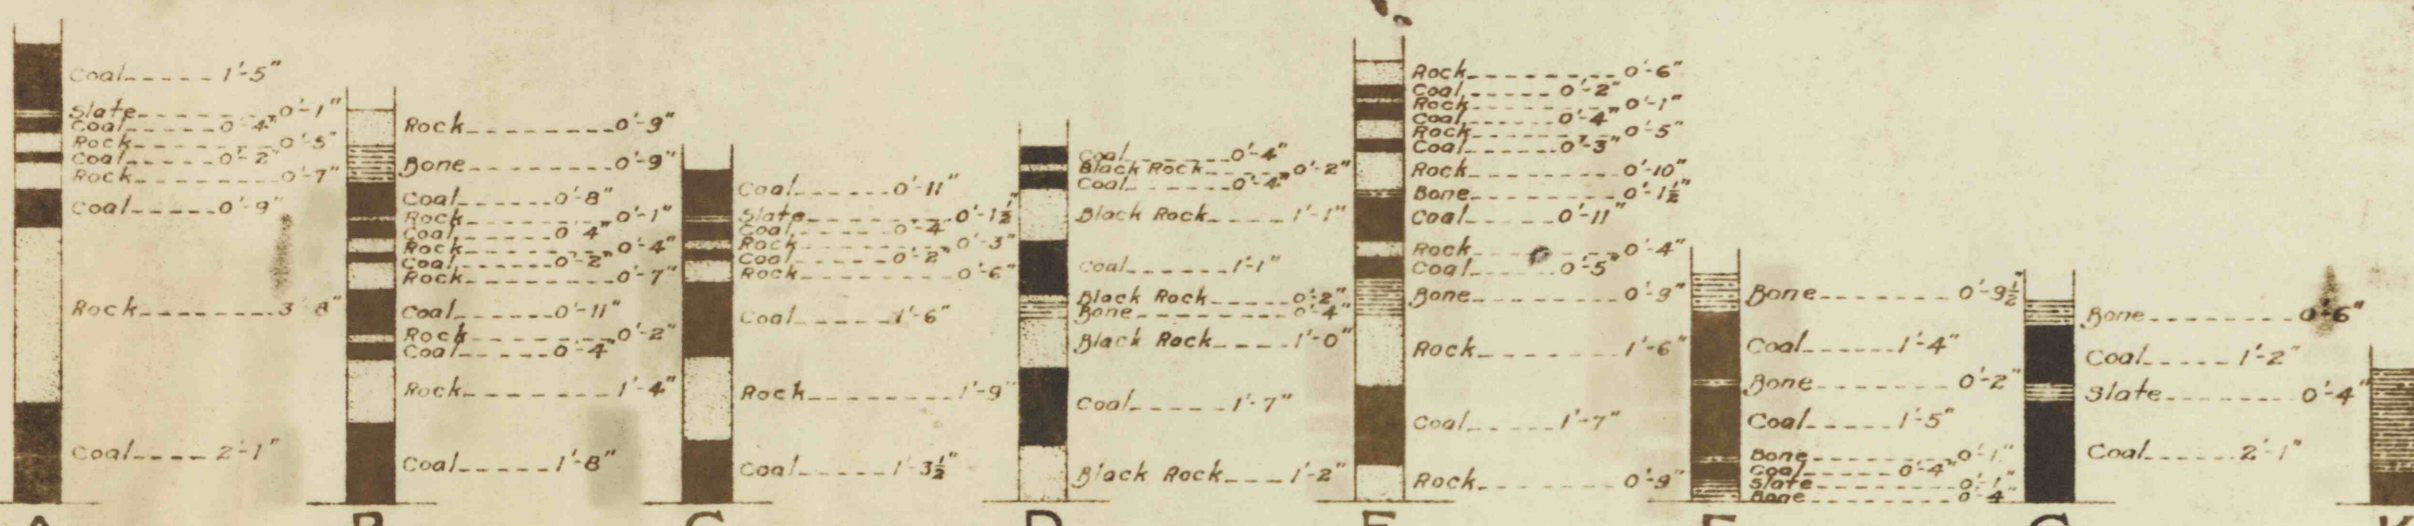 Coal 1'-5"
Slate 0'-1"
Coal 0'-4"
Rock 0'-5"
Coal 0'-2"
Rock 0'-7"
Coal 0'-9"
Rock 3'-8"
Coal 2'-1"
A
Rock 0'-9"
Bone 0'-9"
Coal 0'-8"
Rock 0'-1"
Coal 0'-4"
Rock 0'-4"
Coal 0'-2"
Rock 0'-7"
Coal 0'-11"
Rock 0'-2"
Coal 0'-4"
Rock 1'-4"
Coal 1'-8"
B
Coal 0'-11"
Slate 0'-1½"
Coal 0'-4"
Rock 0'-3"
Coal 0'-2"
Rock 0'-6"
Coal 1'-6"
Rock 1'-9"
Coal 1'-3½"
C
Coal 0'-4"
Black Rock 0'-2"
Coal 0'-4"
Black Rock 1'-1"
Coal 1'-1"
Black Rock 0'-2"
Bone 0'-4"
Black Rock 1'-0"
Coal 1'-7"
Black Rock 1'-2"
D
Rock 0'-6"
Coal 0'-2"
Rock 0'-1"
Coal 0'-4"
Rock 0'-5"
Coal 0'-3"
Rock 0'-10"
Bone 0'-1½"
Coal 0'-11"
Rock 0'-4"
Coal 0'-5"
Bone 0'-9"
Rock 1'-6"
Coal 1'-7"
Rock 0'-9"
E
Bone 0'-9½"
Coal 1'-4"
Bone 0'-2"
Coal 1'-5"
Bone 0'-1"
Coal 0'-4"
Slate 0'-1"
Bone 0'-4"
F
Bone 0'-6"
Coal 1'-2"
Slate 0'-4"
Coal 2'-1"
G